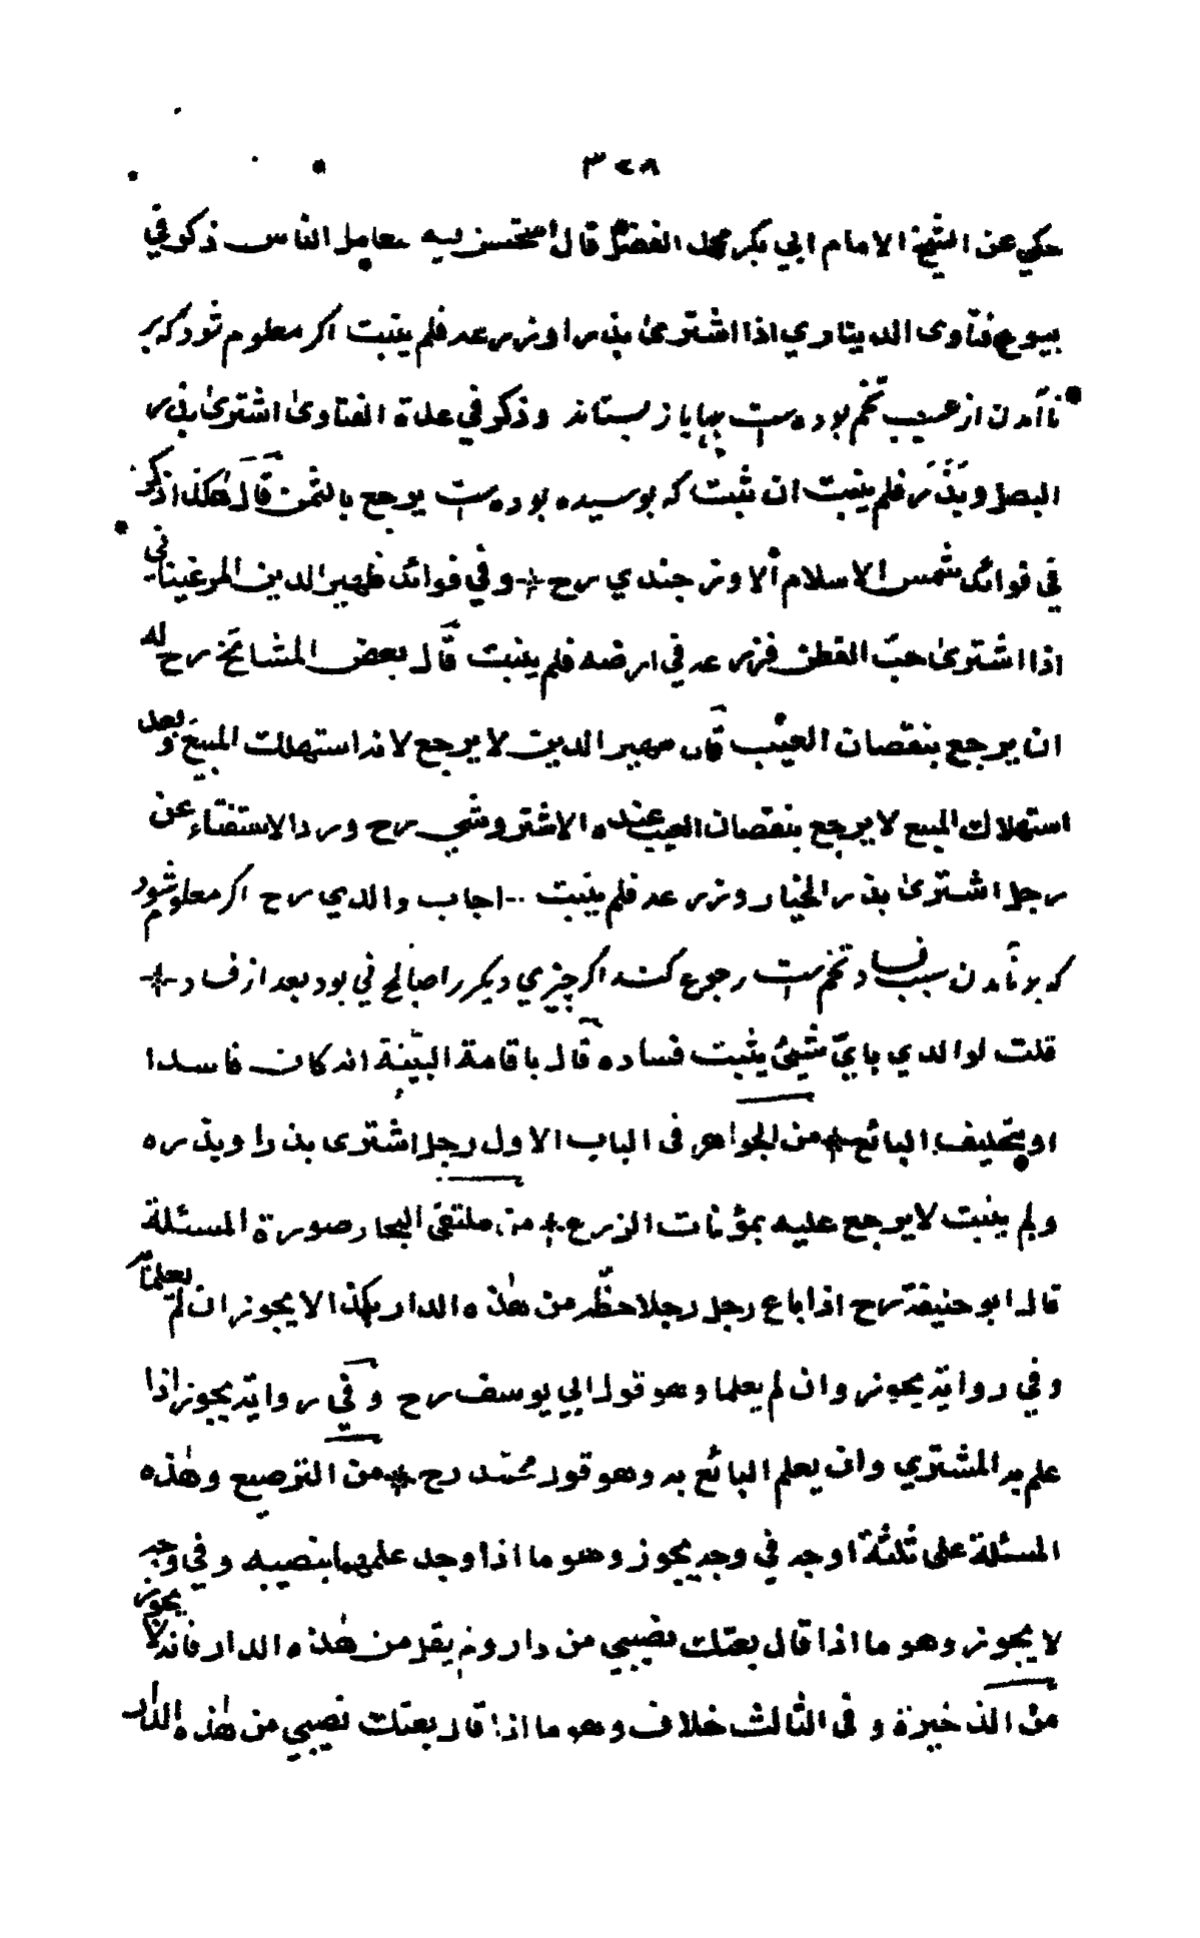 ٣٢٨
حكي عن الشيخ الامام ابي بكر محمد الفضل قال استحسن فيه تعامل الناس ذكر في
بيوع فتاوى الديناري اذا اشترى بذرا وزرعه فلم ينبت اگر معلوم شود كه بر
ناآمدن از عيب تخم بوده ست بها باز بستاند وذكر في عدة الفتاوى اشترى بذر
البصل وبذر فلم ينبت ان ثبت كه بوسيده بوده ست يرجع بالثمن قال هكذا ذكر
في فوائد شمس الاسلام الاوزجندي رح + وفي فوائد ظهير الدين المرغيناني
اذا اشترى حب القطن فزرعه في ارضه فلم ينبت قال بعض المشائخ رح له
ان يرجع بنقصان العيب قال ظهير الدين لا يرجع لانه استهلك المبيع وبعد
استهلاك المبيع لا يرجع بنقصان العيب عنده الاشتروشني رح ورد الاستفتاء عن
رجل اشترى بذر الخيار وزرعه فلم ينبت .. اجاب والدي رح اگر معلوم شود
كه برناآمدن سبب فساد تخم ست رجوع كند اگر چيزي ديگر را صالح ني بود بعد از فساد +
قلت لوالدي باي شيئ يثبت فساده قال باقامة البينة انه كان فاسدا
او بتحليف البائع + من الجواهر فى الباب الاول رجل اشترى بذرا وبذره
ولم ينبت لا يرجع عليه بمؤنات الزرع + من ملتقى البحار صورة المسئلة
قال ابو حنيفة رح اذا باع رجل رجلا حظه من هذه الدار بكذا لا يجوز ان لم يعلما
وفي رواية يجوز وان لم يعلما وهو قول ابي يوسف رح وفي رواية يجوز اذا
علم به المشتري وان لم يعلم البائع به وهو قول محمد رح + من الترصيع وهذه
المسئلة على ثلثة اوجه في وجه يجوز وهو ما اذا وجد علمهما بنصيبه وفي وجه
لا يجوز وهو ما اذا قال بعتك نصيبي من دار ولم يقل من هذه الدار فانه لا يجوز
من الذخيرة وفى الثالث خلاف وهو ما اذا قال بعتك نصيبي من هذه الدار